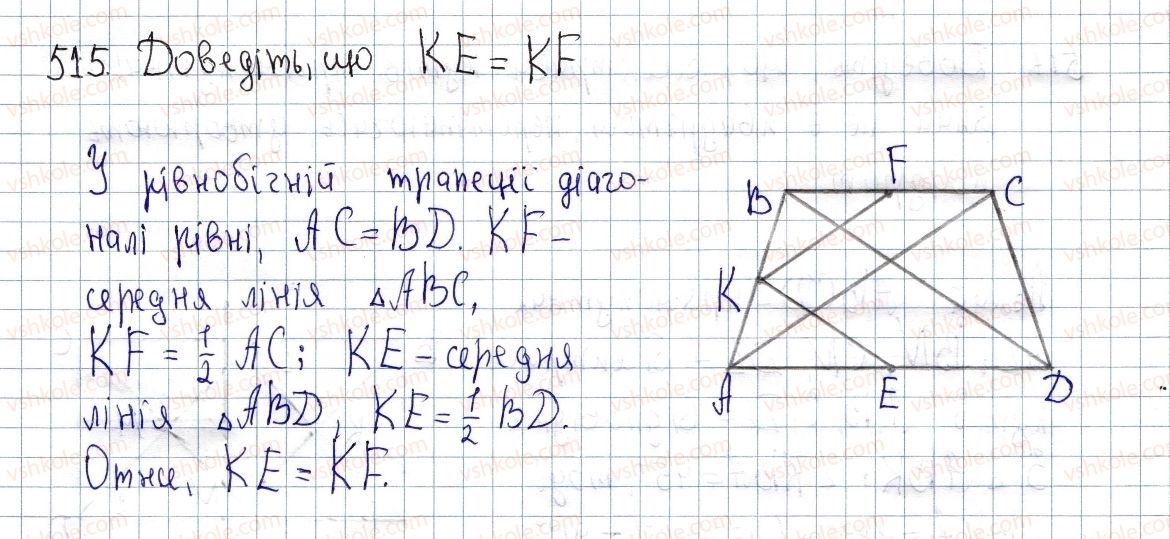 515. Доведіть, що KE = KF
У рівнобічній трапеції діаго-
налі рівні, AC = BD. KF –
середня лінія △ABC,
KF = 1/2 AC; KE – середня
лінія △ABD, KE = 1/2 BD.
Отже, KE = KF.
B F C
K
A E D
vshkole.com